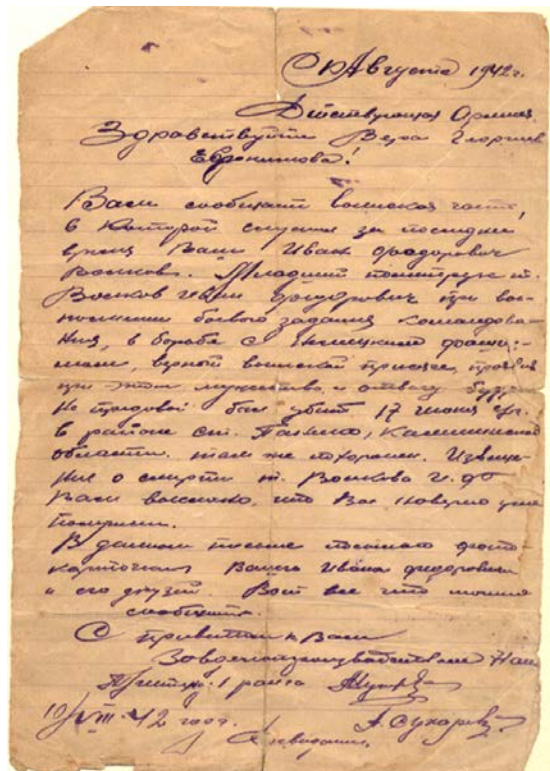 10 Августа 1942г.
Действующая Армия.
Здравствуйте Вера Георгиев
Евронимова!
Вам сообщает воинская часть,
в которой служил за последнее
время Ваш Иван Федорович
Волков. Младший политрук т.
Волков Иван Федорович при вы-
полнении боевого задания командова-
ния, в борьбе с немецким фашиз-
мом, верной воинской присяге, проявив
при этом мужество и отвагу будучи
на передовой был убит 17 июня с/г.
в районе ст. Калининской
области. там же похоронен. Извеще-
ние о смерти т. Волкова И. Ф.
Вам выслано, что Вы наверно уже
получили.
В данном письме посылаю фото-
карточки Вашего Ивана Федоровича
и его друзей. Вот все что можно
сообщить.
С приветом к Вам
1 ранга
10/VIII-42 года. Сухарев